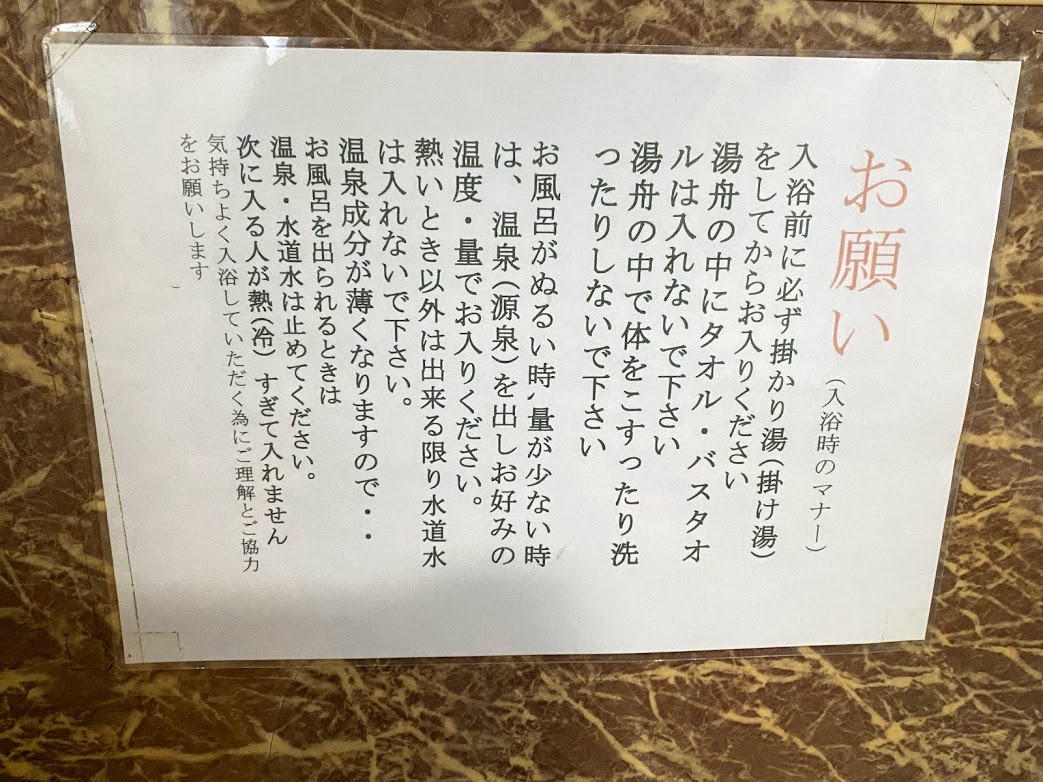 お願い
(入浴時のマナー)
入浴前に必ず掛かり湯(掛け湯)
をしてからお入りください
湯舟の中にタオル・バスタオ
ルは入れないで下さい
湯舟の中で体をこすったり洗
ったりしないで下さい
お風呂がぬるい時、量が少ない時
は、温泉(源泉)を出しお好みの
温度・量でお入りください。
熱いとき以外は出来る限り水道水
は入れないで下さい。
温泉成分が薄くなりますので・・
お風呂を出られるときは
温泉・水道水は止めてください。
次に入る人が熱(冷)すぎて入れません
気持ちよく入浴していただく為にご理解とご協力
をお願いします